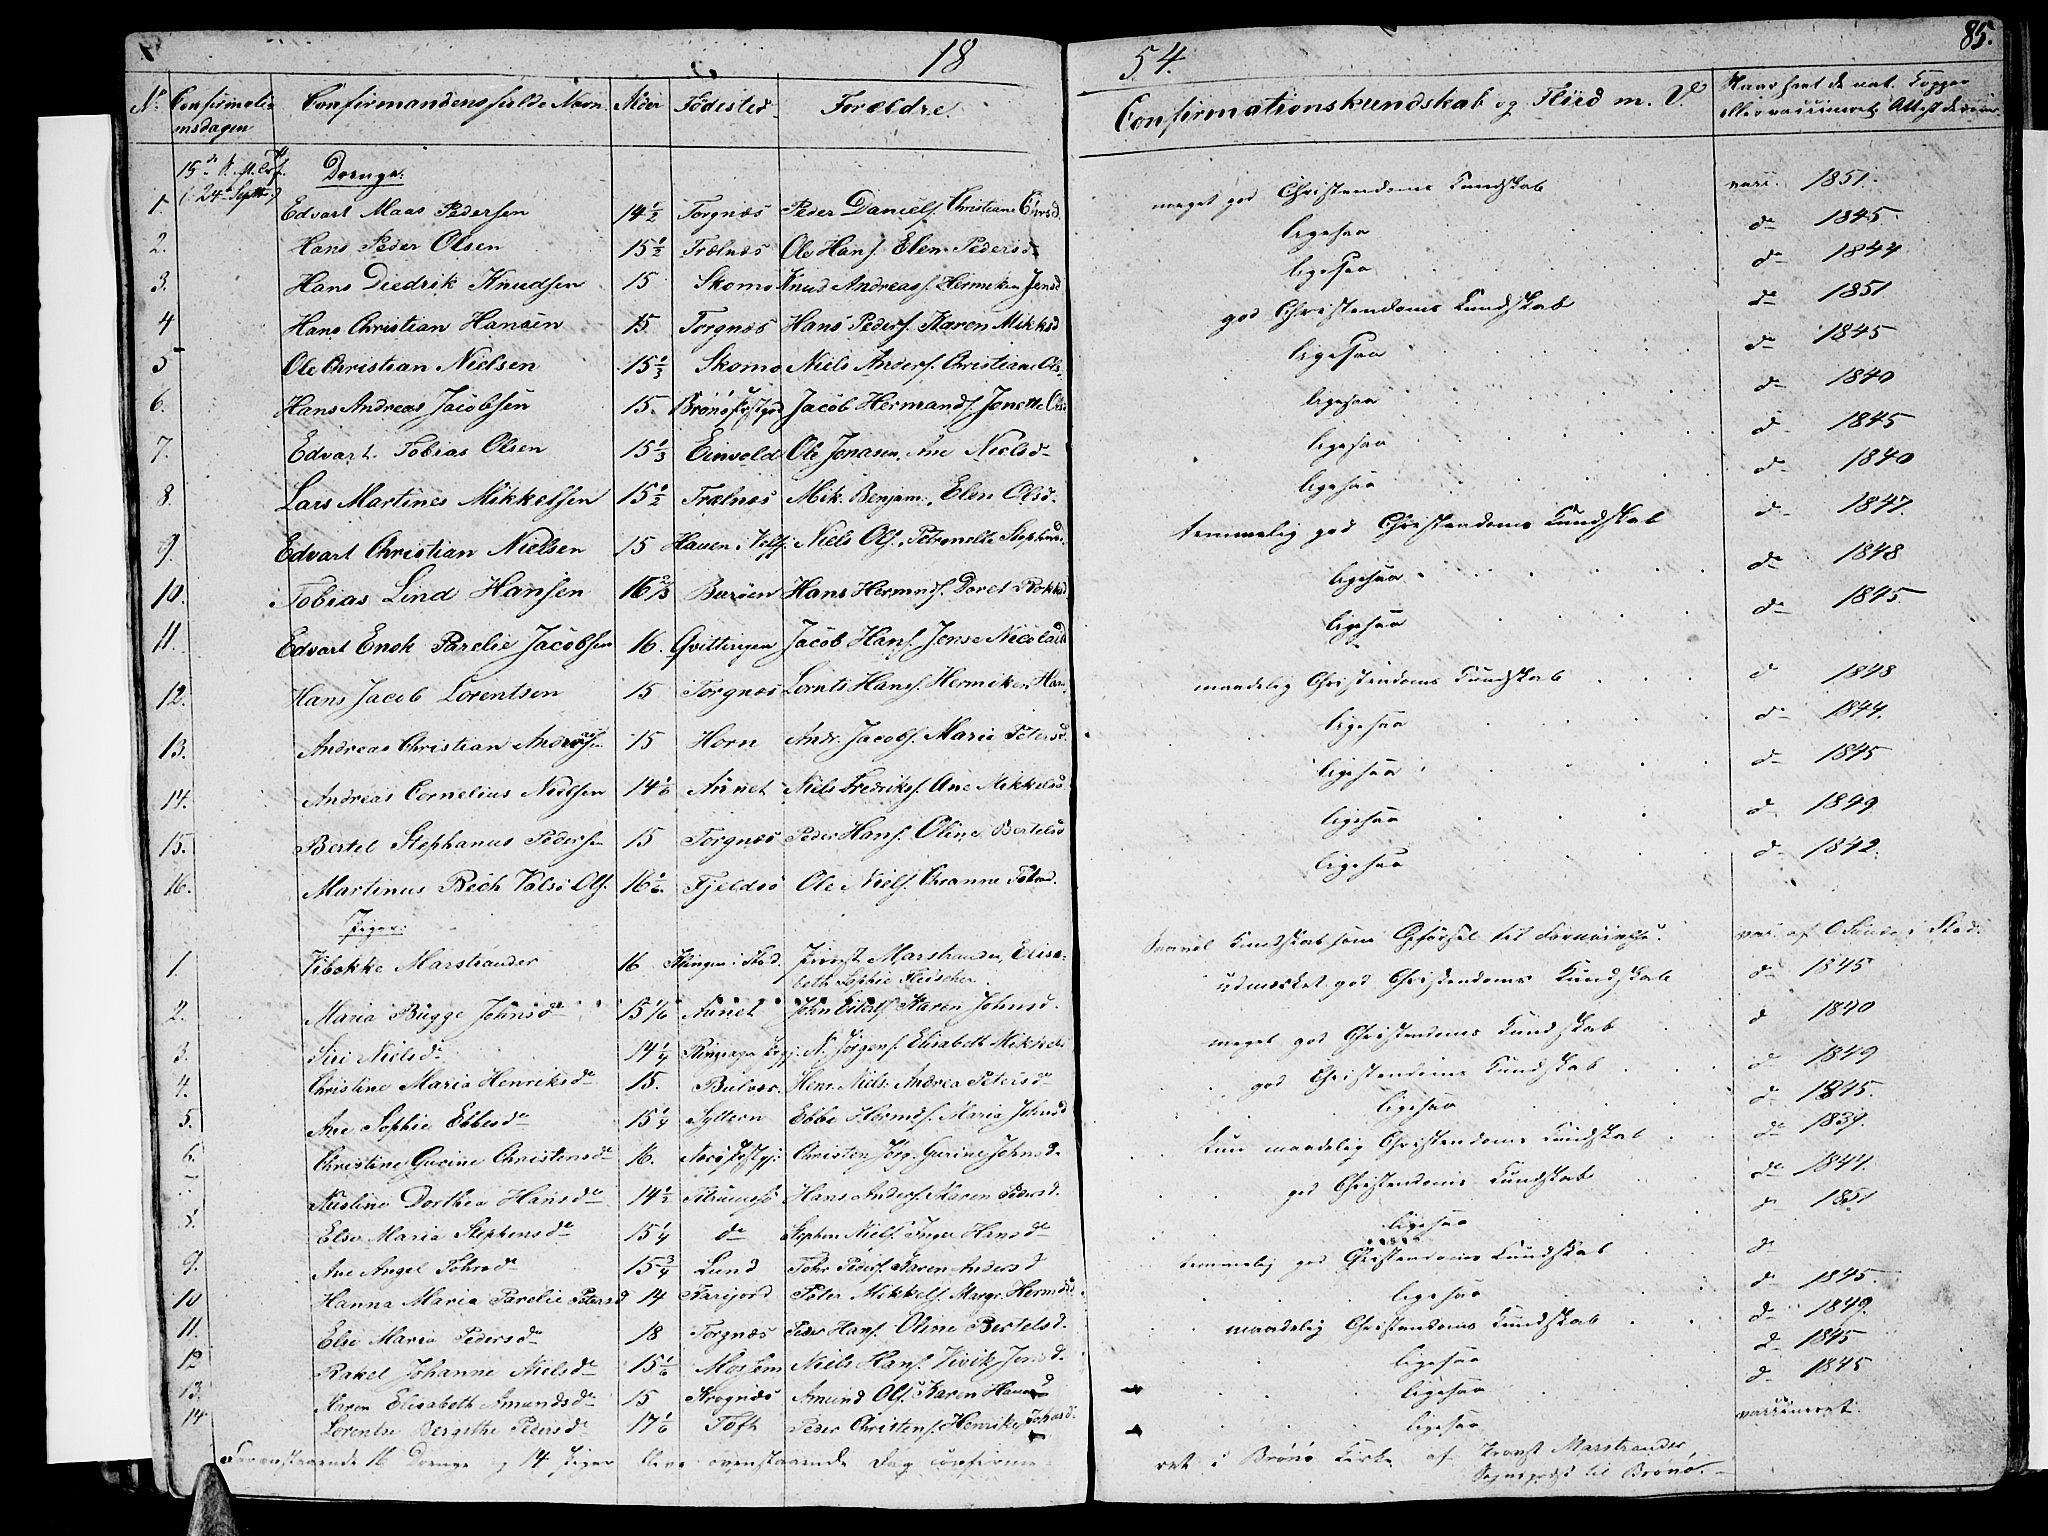 18 54. 85.
No Confirmationsdagen Confirmandens fulde Navn Alder Fødested Forældre. Confirmationskundskab og Fliid m. V. Naar havt de nat. Kopper eller vaccineret
15de
(24de Septbr)
Drenge.
1. Edvart Maas Pedersen 14 1/2 Torgnæs Peder Daniels. Christiane meget god Christendoms Kundskab vacc. 1851.
2. Hans Peder Olsen 15 1/2 Trælnæs Ole Hans. Elen Pedersd. ligesaa do 1845.
3. Hans Diedrik Knudsen 15 Skomo Knud Andreas. Hermiken Jensd ligesaa do 1844
4 Hans Christian Hansen 15 Torgnæs Hans Peders. Karen Mikksd god Christendoms Kundskab do 1851
5 Ole Christian Nielsen 15 1/3 Skomo Niels Anders. Christiane Ols. ligesaa do 1845
6. Hans Andreas Jacobsen 15. Brønø Jacob Hermands. Jonette Ols ligesaa do 1840
7. Edvart Tobias Olsen 15 1/3 Einvold Ole Jonasen, Ane Nielsd. ligesaa do 1845
8. Lars Martines Mikkelsen 15 1/2 Trælnæs Mik. Benjam. Elen Olsd. ligesaa do 1840
9. Edvart Christian Nielsen 15 Haven i Velf. Niels Ols. Petronelle temmelig god Christendoms Kundskab do 1847.
10. Tobias Lind Hansen 16 2/3 Burøen Hans Hermnds. Doret ligesaa do 1848
11. Edvart Enok Parelie Jacobsen 16. Qvittingen Jacob Hans. Jense Nicolaid ligesaa do 1845.
12. Hans Jacob Lorentsen 15 Torgnæs Lornts Hans. Hermiken Han. maadelig Christendoms Kundskab do 1848
13. Andreas Christian Andersen 15 Horn Andr. Jacobs. Maria Petersd. ligesaa do 1844.
14. Andreas Cornelius Nielsen 14 1/6 Aunet Niels Fredriks. Ane Mikkelsd ligesaa do 1845
15. Bertel Stephanus Pedersen 15 Torgnæs Peder Hans. Oline Bertelsd ligesaa do 1849
16. Martinus Bech Valsø Ols. 16 1/6 Fjeldsø Ole Niels. ligesaa do 1842.
Piger:
1. Vibekke Marstrander 16 i Stod. Provst Marstrander, Elisa- Kundskab som Opførsel til Fornøielse. vacc. af i Stod.
beth Sophie Fleischer.
2. Maria Bugge Johnsdr 15 1/6 Aunet John Karen Johnsd. udmærket god Christendoms Kundskab do 1845
3. Siri Nielsdr 14 1/4 N. Jörgens. Elisabeth Mikkels meget god Christendoms Kundskab do 1840
4. Christine Maria Henriksdr 15. Bulvær. Henr. Niels. Andrea Petersdr god Christendoms Kundskab do 1849
5. Ane Sophie Ebbesdr 15 1/4 Syltern Ebbe Hermds. Maria Johnsd ligesaa do 1845.
6. Christine Gurine Christensdr 16. Nærø Christen Jörg. Gurine Johnsd. Kun maadelig Christendoms Kundskab do 1839.
Nicoline Dorthea Hansdr 14 1/2 Hans Anders. Maren Pedersd. god Christendoms Kundskab do 1844.
8. Else Maria Stephensdr 15 1/4 do Stephen Niels. Inger Hansdr ligesaa do 1851
9. Ane Angel Tohrsdr 15 3/4 Lund Tohr Peders. Karen Andersd temmelig god Christendoms Kundskab do
10 Hanna Maria Parelie Petersd 14 Peter Mikkels. Margr. Hermdsd ligesaa do 1845.
11. Else Maria Pedersdr 18 Torgnæs Peder Hans. Oline Bertelsd. maadelig Christendoms Kundskab do 1849.
12 Rakel Johanne Nielsdr 15 1/6 Mosem Niels Hans. Vivik Jonsd. ligesaa do 1845
13. Karen Elisabeth Amundsdr 15 Krognæs Amund Ols. Karen Hansd ligesaa do 1845
14 Lorentse Bergithe Pedersdr 17 1/6 Toft Peder Christens. Henrikke ligesaa vaccineret.
Foranstaaende 16 Drenge og 14 Piger bleve ovenstaaende Dag confirme-
ret i Brønø Kirke af Provst Marstrander,
Sognepræst til Brønø.